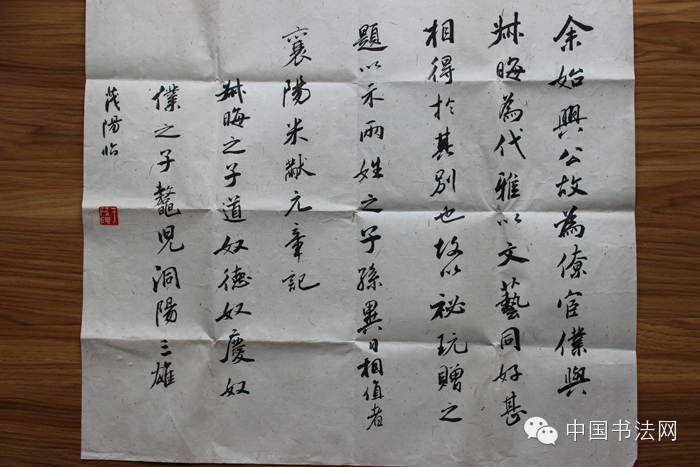 余始興公故為僚宦僕與
叔晦為代雅以文藝同好甚
相得於其別也故以祕玩贈之
題以示兩姓之子孫異日相值者
襄陽米黻元章記
叔晦之子道奴德奴慶奴
僕之子鼇兒洞陽三雄
茂陽临
中国书法网